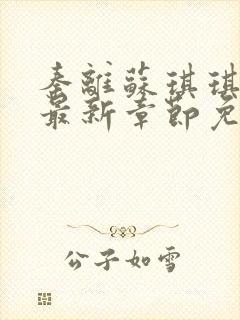 秦離蘇琪琪
最新章節免
公子如雪